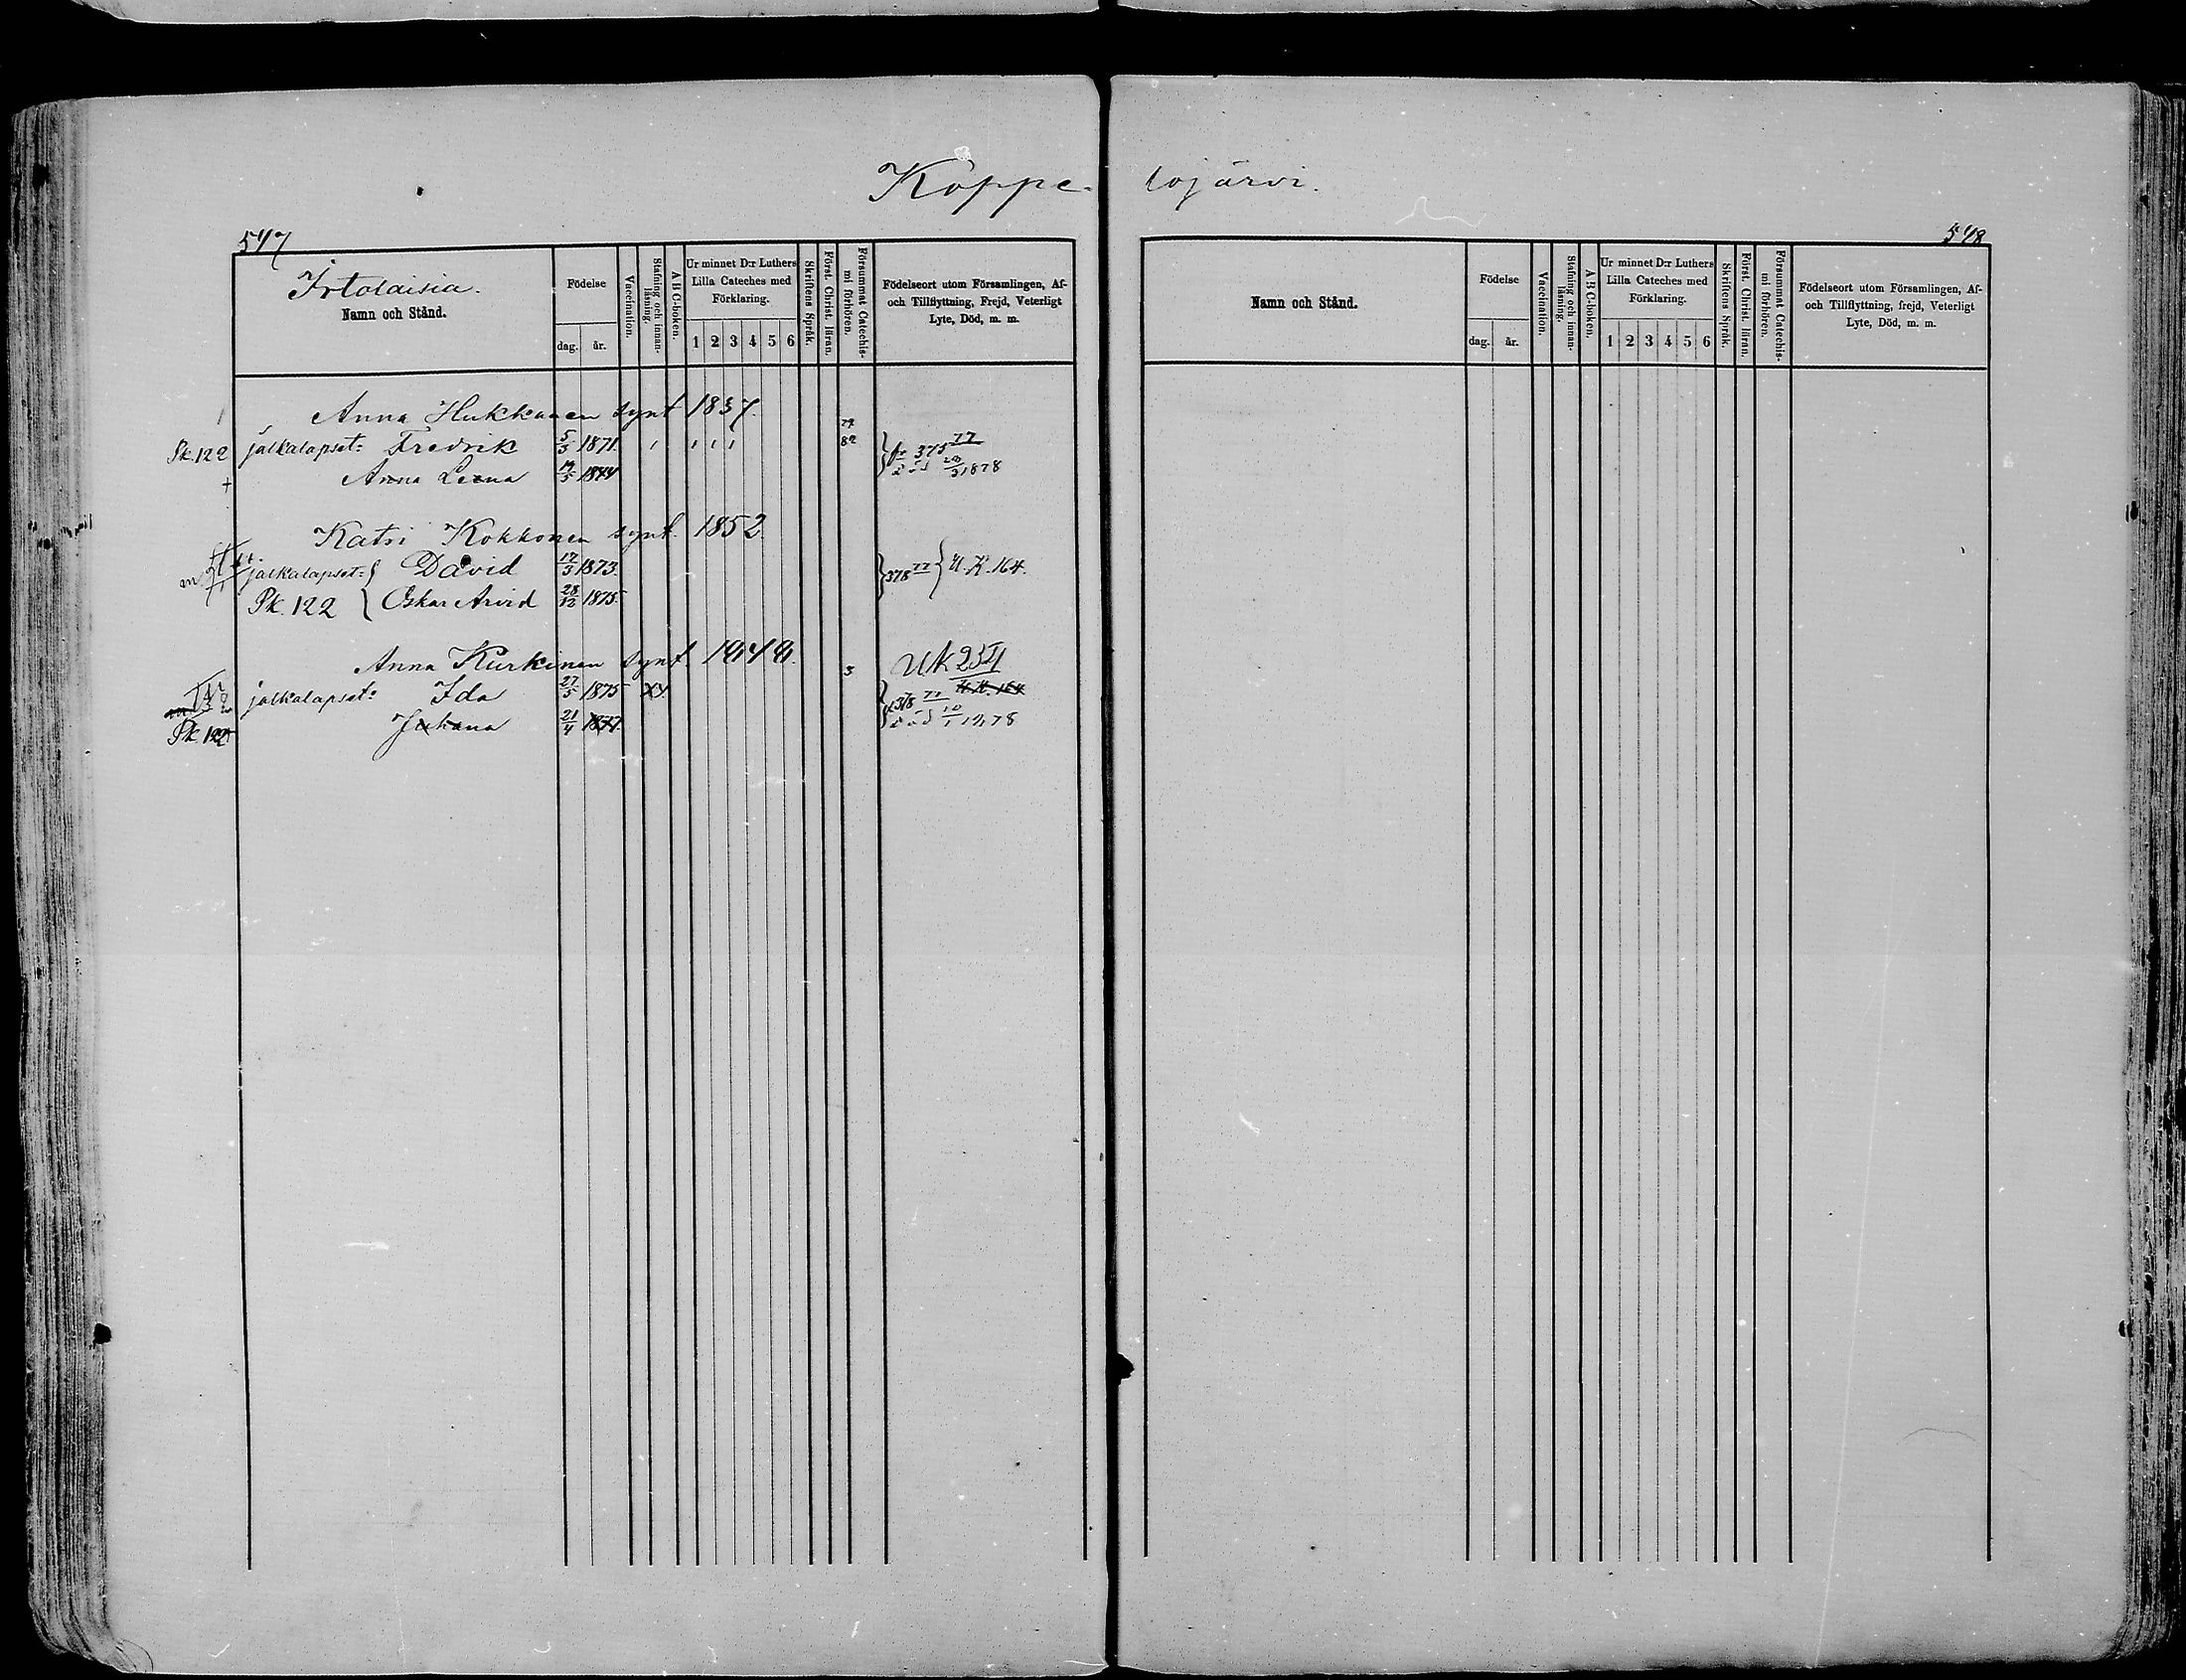 Koppe-lojärvi.
547
Irtolaisia.
Namn och Stånd.
Födelse
dag. år.
Vaccination.
Stafning och innan-läsning.
A B C-boken.
Ur minnet D:r Luthers
Lilla Cateches med
Förklaring.
1 2 3 4 5 6
Skriftens Språk.
Först. Christ. läran.
Försummat Catechis-mi förhören.
Födelseort utom Församlingen, Af-
och Tillflyttning, Frejd, Veterligt
Lyte, Död, m. m.
Anna Hukkanen synt 1837.
77
Pk. 122 jalkalapset: Fredrik 5/3 1871. 82 375 77
+ Anna Leena 1874 död 1878
Katri Kokkonen synt. 1852
jalkalapset: David 17/3 1873. 378 77 U.K. 164.
Pk. 122 Oskar Arvid 28/12 1875.
Anna Kurkinen synt. 1848. 3 UK 231
jalkalapset: Ida 27/5 1875 378 77 U.K. 164
Pk. 122 Juhana 21/4 1877. död 10/1 1878
548
Namn och Stånd.
Födelse
dag. år.
Vaccination.
Stafning och innan-läsning.
A B C-boken.
Ur minnet D:r Luthers
Lilla Cateches med
Förklaring.
1 2 3 4 5 6
Skriftens Språk.
Först. Christ. läran.
Försummat Catechis-mi förhören.
Födelseort utom Församlingen, Af-
och Tillflyttning, frejd, Veterligt
Lyte, Död, m. m.